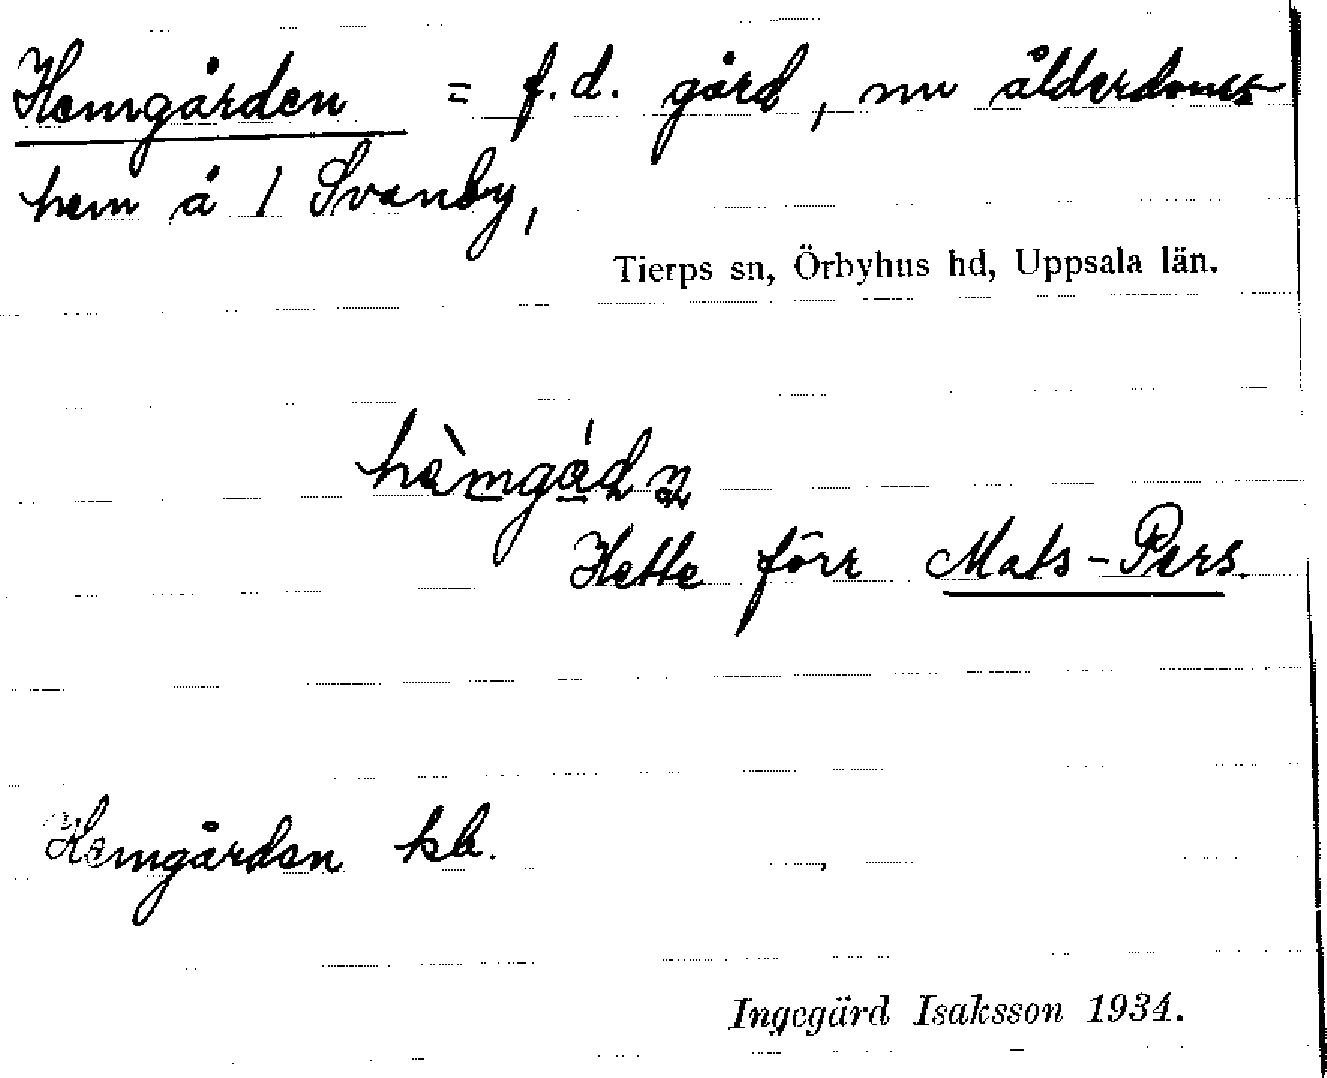 Hemgården = f.d. gård, nu ålderdoms-
hem å 1 Svanby,
Tierps sn, Örbyhus hd, Uppsala län.
hèmgá̱dn̥
Hette förr Mats-Pers.
Hemgården kb.
Ingegärd Isaksson 1934.